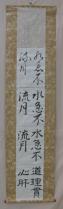 水急不
流月
水急不
流月
水急不
流月
道理貫
心肝